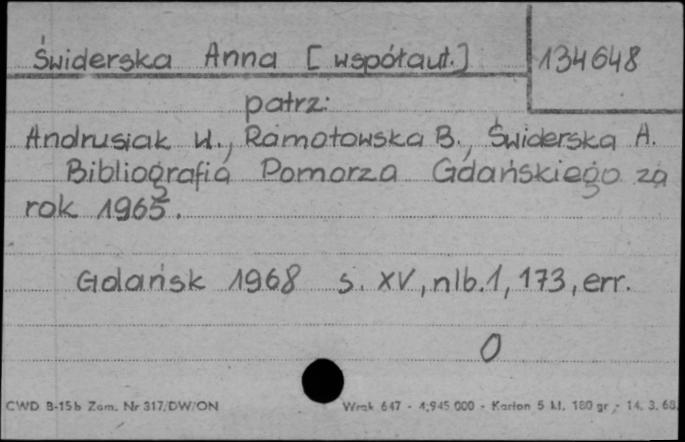 Świderska Anna [współaut.] 134648
patrz:
Andrusiak U., Ramotowska B., Świderska A.
Bibliografia Pomorza Gdańskiego za
rok 1965.
Gdańsk 1968 s. XV, nlb.1, 173, err.
0
CWD B-15b Zam. Nr 317/DW/ON Wrak 647 - 4.945.000 - Karton 5 kl. 180 gr - 14. 3. 68.